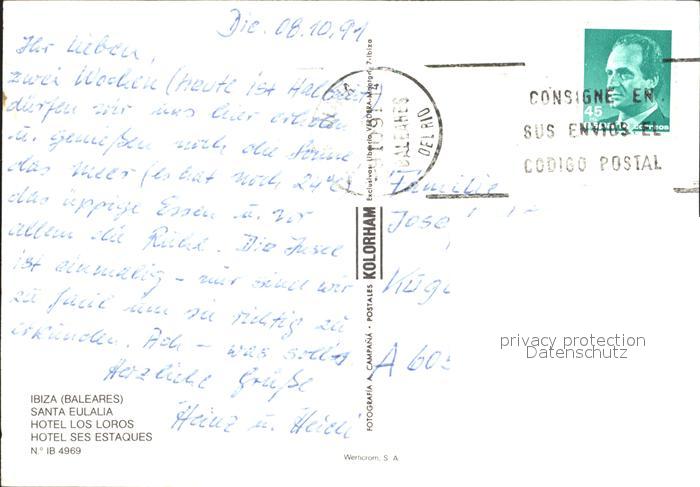 Die. 08.10.91
Ihr Lieben,
zwei Wochen (heute ist Halbzeit)
dürfen wir uns hier erholen
u. genießen noch die Sonne
das Meer (es hat noch 24°)
das üppige Essen u. vor
allem die Ruhe. Die Insel
ist einmalig - nur sind wir
zu faul um sie richtig zu
erkunden. Ach - was soll's
Herzliche Grüße
Heinz u. Heidi
IBIZA (BALEARES)
SANTA EULALIA
HOTEL LOS LOROS
HOTEL SES ESTAQUES
N.º IB 4969
FOTOGRAFIA A. CAMPAÑÁ · POSTALES KOLORHAM Exclusivas Librería VERDERA-Ibiza
Werticrom, S. A.
BALEARES
DEL RIO
CONSIGNE EN
SUS ENVIOS EL
CODIGO POSTAL
45
CORREOS
Familie
Jose
A 60
privacy protection
Datenschutz